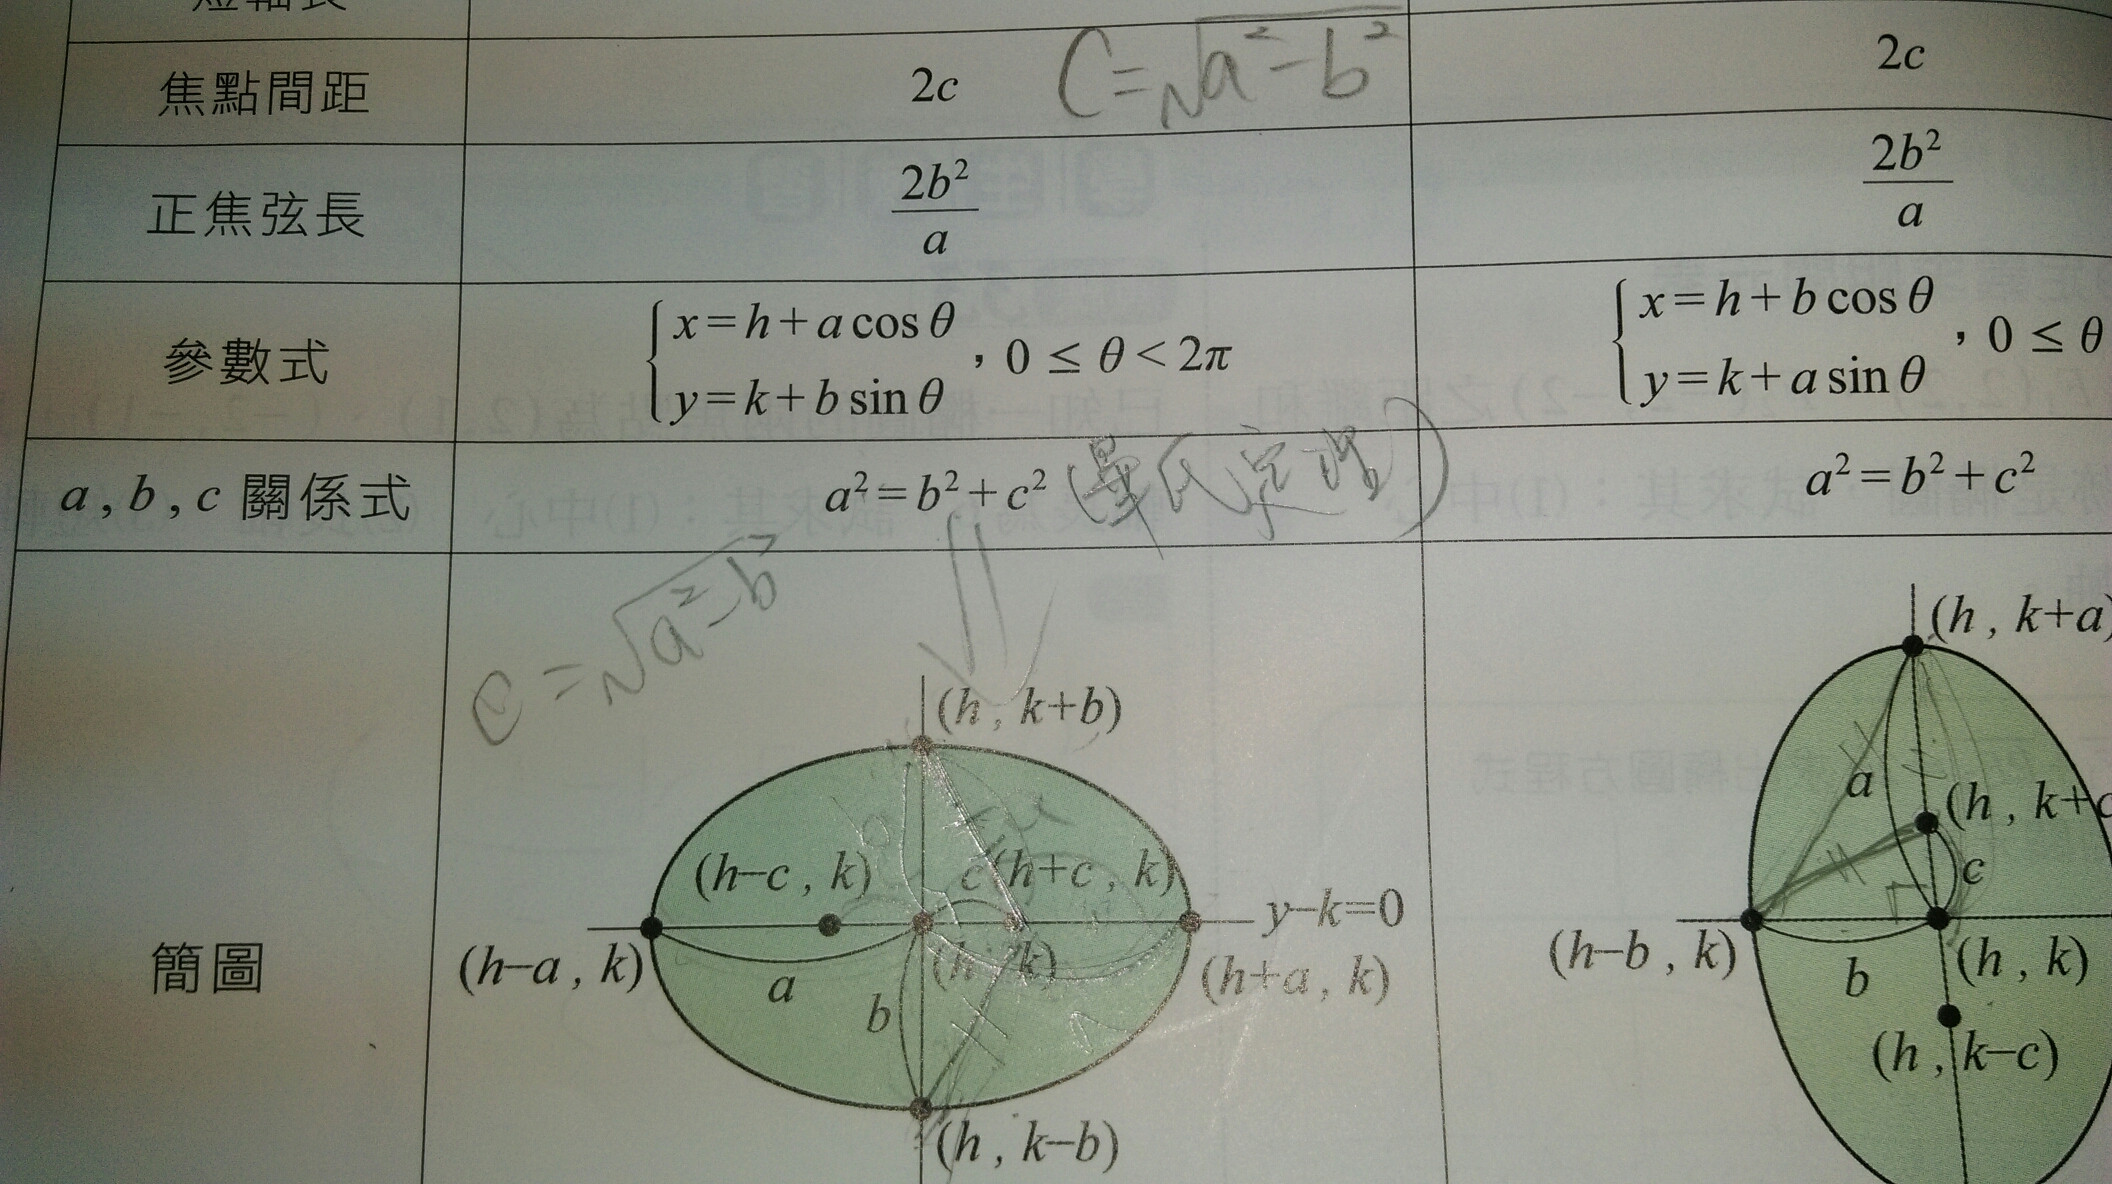 短軸長
焦點間距 2c C=√a²-b² 2c
正焦弦長 2b²/a 2b²/a
參數式 {x=h+a cosθ, y=k+b sinθ ,0≤θ<2π {x=h+b cosθ, y=k+a sinθ ,0≤θ
a,b,c 關係式 a²=b²+c² (畢氏定理) a²=b²+c²
C=√a²-b²
簡圖
(h, k+b)
(h-c, k) c (h+c, k)
y-k=0
(h-a, k) a (h, k) (h+a, k)
b
(h, k-b)
(h, k+a)
a (h, k+c
c
(h-b, k) b (h, k)
(h, k-c)